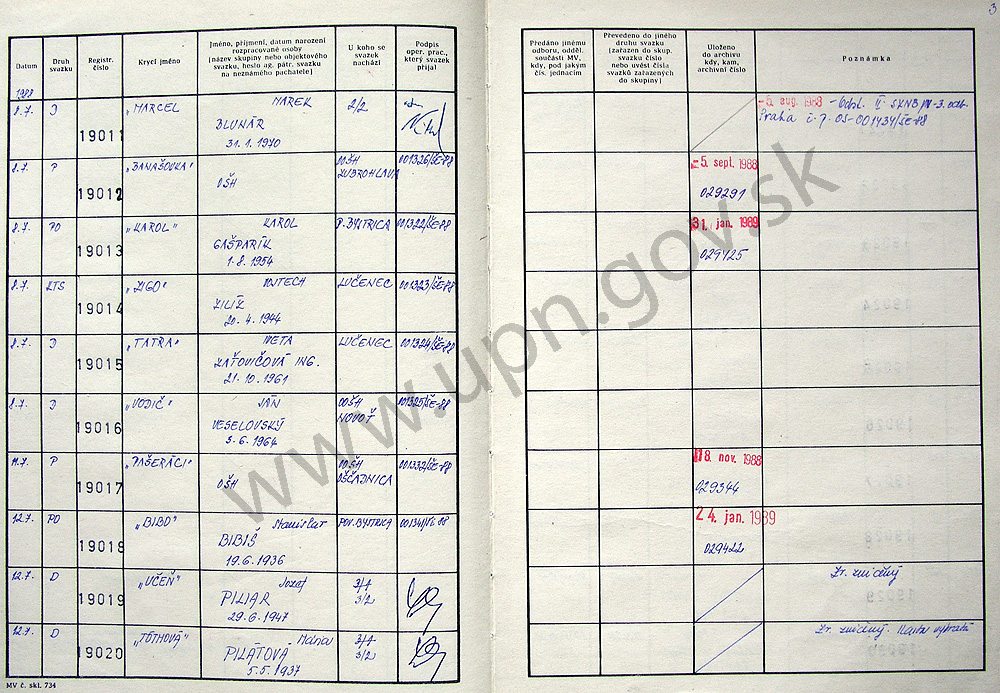 3
Datum
Druh svazku
Registr. číslo
Krycí jméno
Jméno, příjmení, datum narození
rozpracované osoby
(název skupiny nebo objektového
svazku, heslo ag. pátr. svazku
na neznámého pachatele)
U koho se
svazek
nachází
Podpis
oper. prac.,
který svazek
přijal
Předáno jinému
odboru, odděl.
součásti MV,
kdy, pod jakým
čís. jednacím
Převedeno do jiného
druhu svazku
(zařazen do skup.
svazku číslo
nebo uvést čísla
svazků zařazených
do skupiny)
Uloženo
do archivu
kdy, kam,
archivní číslo
Poznámka
1988
8.7. D 19011 „MARCEL MAREK 2/2
BLUNÁR
31. 1. 1970
-5. aug. 1988 - Odsl. II. SKNB
Praha
8.7. P 19012 „BANAŠOVKA" OŠH OOŠH
ZUBROHLAVA
001326/ŠE-88
-5. sept. 1988
029291
8.7. PO 19013 „KAROL" KAROL P. BYSTRICA 001322/ŠE-88
GAŠPARÍK
1. 8. 1954
31. jan. 1989
029425
8.7. KTS 19014 „ŽIGO" VOJTECH LUČENEC 001323/ŠE-88
20. 4. 1944
8.7. D 19015 „TATRA" IVETA LUČENEC 001324/ŠE-88
ZAŤOVIČOVÁ ING.
21. 10. 1961
8.7. D 19016 „VODIČ" JÁN OOŠH
NOVOŤ
001325/ŠE-88
VESELOVSKÝ
3. 6. 1964
11.7. P 19017 „PAŠERÁCI" OŠH OOŠH
OŠČADNICA
001332/ŠE-88
18. nov. 1988
029344
12.7. PO 19018 „BIBO" Stanislav POV. BYSTRICA 001341/ŠE-88
BIBIŠ
19. 6. 1936
24. jan. 1989
029422
12.7. D 19019 „UČEŇ" Jozef 3/1
3/2
PILIAR
29. 6. 1947
Zv. zničený
12.7. D 19020 „TÓTHOVÁ" Mária 3/1
3/2
PILÁTOVÁ
5. 5. 1937
Zv. zničený.
MV č. skl. 734
www.upn.gov.sk